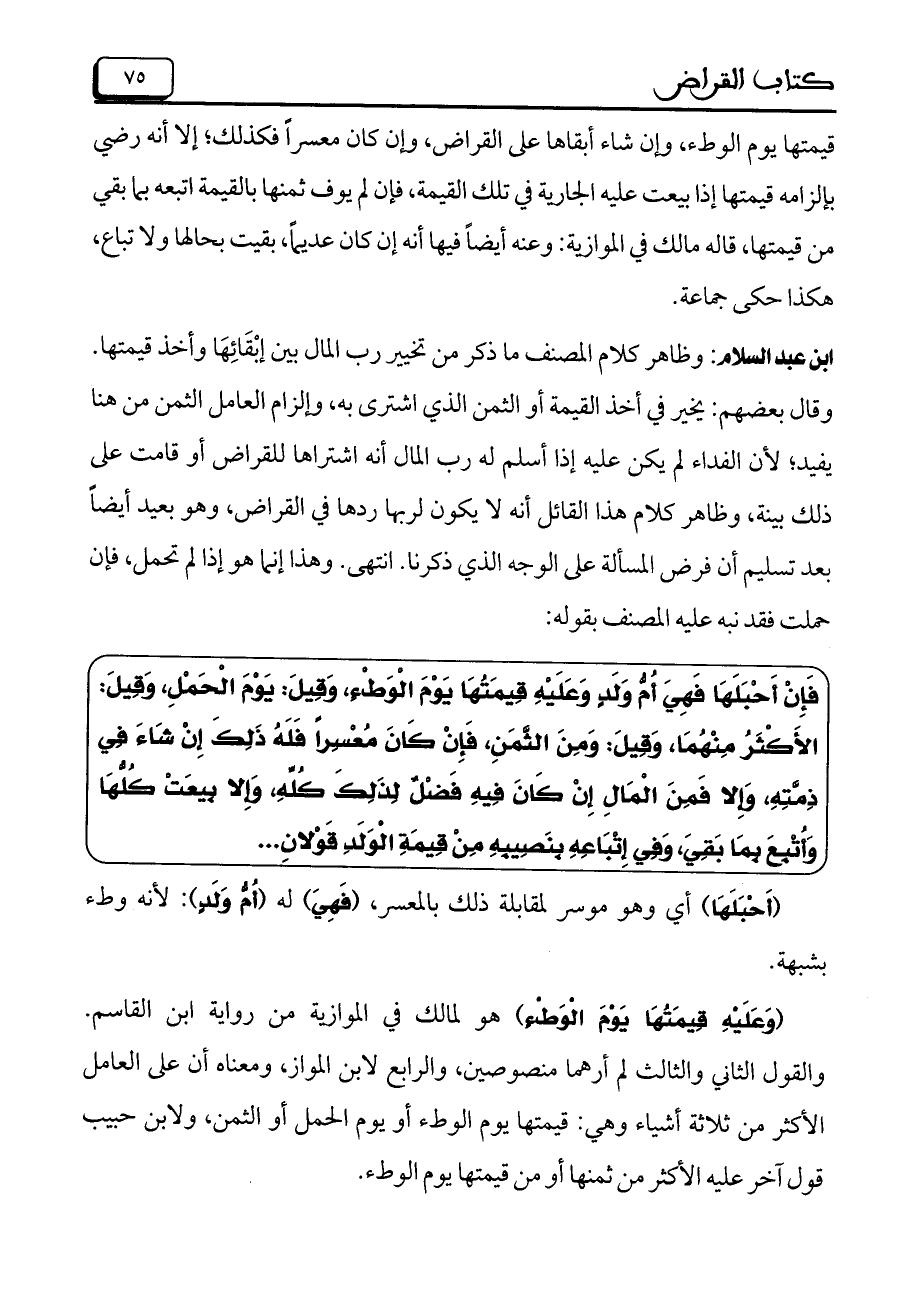 كتاب القراض
٧٥
قيمتها يوم الوطء، وإن شاء أبقاها على القراض، وإن كان معسراً فكذلك؛ إلا أنه رضي
بإلزامه قيمتها إذا بيعت عليه الجارية في تلك القيمة، فإن لم يوف ثمنها بالقيمة اتبعه بما بقي
من قيمتها، قاله مالك في الموازية: وعنه أيضاً فيها أنه إن كان عديماً، بقيت بحالها ولا تباع،
هكذا حكى جماعة.
ابن عبد السلام: وظاهر كلام المصنف ما ذكر من تخيير رب المال بين إِبْقَائِهَا وأخذ قيمتها.
وقال بعضهم: يخير في أخذ القيمة أو الثمن الذي اشترى به، وإلزام العامل الثمن من هنا
يفيد؛ لأن الفداء لم يكن عليه إذا أسلم له رب المال أنه اشتراها للقراض أو قامت على
ذلك بينة، وظاهر كلام هذا القائل أنه لا يكون لربها ردها في القراض، وهو بعيد أيضاً
بعد تسليم أن فرض المسألة على الوجه الذي ذكرنا. انتهى. وهذا إنما هو إذا لم تحمل، فإن
حملت فقد نبه عليه المصنف بقوله:
فَإِنْ أَحْبَلَهَا فَهِيَ أُمُّ وَلَدٍ وَعَلَيْهِ قِيمَتُهَا يَوْمَ الْوَطْءِ، وَقِيلَ: يَوْمَ الْحَمْلِ، وَقِيلَ:
الأَكْثَرُ مِنْهُمَا، وَقِيلَ: وَمِنَ الثَّمَنِ، فَإِنْ كَانَ مُعْسِراً فَلَهُ ذَلِكَ إِنْ شَاءَ فِي
ذِمَّتِهِ، وَإِلا فَمِنَ الْمَالِ إِنْ كَانَ فِيهِ فَضْلٌ لِذَلِكَ كُلِّهِ، وَإِلا بِيعَتْ كُلُّهَا
وَأُتْبِعَ بِمَا بَقِيَ، وَفِي إِتْبَاعِهِ بِنَصِيبِهِ مِنْ قِيمَةِ الْوَلَدِ قَوْلانِ...
(أَحْبَلَهَا) أي وهو موسر لمقابلة ذلك بالمعسر، (فَهِيَ) له (أُمُّ وَلَدٍ): لأنه وطء
بشبهة.
(وَعَلَيْهِ قِيمَتُهَا يَوْمَ الْوَطْءِ) هو لمالك في الموازية من رواية ابن القاسم.
والقول الثاني والثالث لم أرهما منصوصين، والرابع لابن المواز، ومعناه أن على العامل
الأكثر من ثلاثة أشياء وهي: قيمتها يوم الوطء أو يوم الحمل أو الثمن، ولابن حبيب
قول آخر عليه الأكثر من ثمنها أو من قيمتها يوم الوطء.